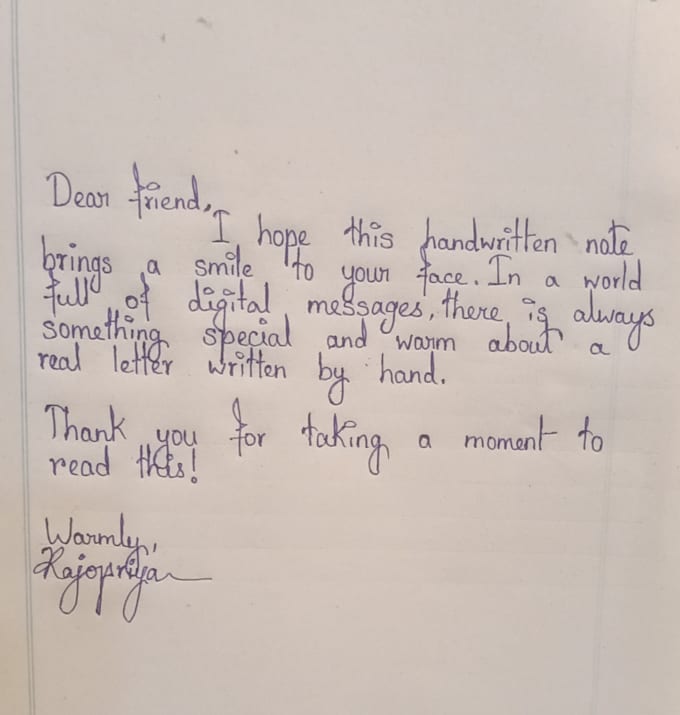 Dear friend,
I hope this handwritten note
brings a smile to your face. In a world
full of digital messages, there is always
something special and warm about a
real letter written by hand.
Thank you for taking a moment to
read this!
Warmly,
Rajopriya